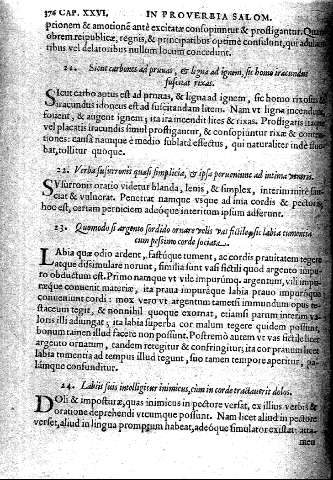 376 CAP. XXVI. IN PROVERBIA SALOM.
ptionem & amotionē ante excitatæ consopiuntur & profligantur.
obrem reipublicæ, regnis, & principatibus optimè consulunt, qui adula
ribus vel delatoribus nullum locum concedunt.
21. Sicut carbones ad prunas, & ligna ad ignem, sic homo iracundus
suscitat rixas.
SIcut carbo aptus est ad prunas, & ligna ad ignem, sic homo rixosus &
iracundus idoneus est ad suscitandam litem. Nam vt ligna incendium
fouent, & augent ignem; ita ira incendit lites & rixas. Profligatis iracundis
vel placatis iracundis simul profligantur, & consopiuntur rixæ & conten
tiones: causâ namque è medio sublatâ effectus, qui naturaliter inde
bat, tollitur quoque.
22. Verba susurronis quasi simplicia, & ipsa perueniunt ad intima ventris.
SVsurronis oratio videtur blanda, lenis, & simplex, interim mitè
ciat & vulnerat. Penetrat namque vsque ad ima cordis & pectoris
hoc est, certam perniciem adeóque interitum ipsum adferunt.
23. Quomodo si argento sordido ornare velis vas fictile, sic labia tumentia
cum pessimo corde sociata.
LAbia quæ odio ardent, fastúque tument, ac cordis prauitatem tegere
atque dissimulare norunt, similia sunt vasi fictili quod argento impu-
ro obductum est. Primo namque vt vile impurúmq; argentum, vili impu-
ræque conuenit materiæ, ita praua impuráque labia prauo impuróque
conueniunt cordi: mox vero vt argentum tametsi immundum opus te-
staceum tegit, & nonnihil quoque exornat, etiamsi parum interim va-
loris illi adiungat; ita labia superba cor malum tegere quidem possunt,
bonum tamen illud facere non possunt. Postremò autem vt vas fictile licet
argento ornatum, tandem retegitur & confringitur; ita cor prauum licet
labia tumentia ad tempus illud tegunt, suo tamen tempore aperitur, pa-
làmque confunditur.
24. Labiis suis intelligitur inimicus, cùm in corde tractauerit dolos.
DOli & imposturæ, quas inimicus in pectore versat, ex illius verbis &
oratione deprehendi vtcumque possunt. Nam licet aliud in pectore
verset, aliud in lingua promptum habeat, adeóque simulator existat: atta-
men